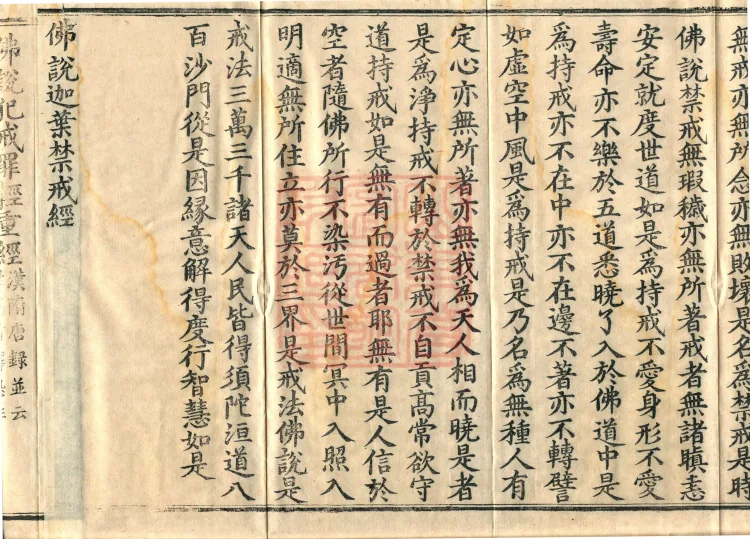 無戒亦無所念亦無敗壞是名為禁戒是時
佛說禁戒無瑕穢亦無所著戒者無諸瞋恚
安定就度世道如是為持戒不愛身形不愛
壽命亦不樂於五道悉曉了入於佛道中是
為持戒亦不在中亦不在邊不著亦不轉譬
如虛空中風是為持戒是乃名為無種人有
定心亦無所著亦無我為天人相而曉是者
是為淨持戒不轉於禁戒不自貢高常欲守
道持戒如是無有而過者耶無有是人信於
空者隨佛所行不染汚從世間冥中入照入
明適無所住立亦莫於三界是戒法佛說是
戒法三萬三千諸天人民皆得須陀洹道八
百沙門從是因緣意解得度行智慧如是
佛說迦葉禁戒經
佛說犯戒罪經重經漢隋唐録並云